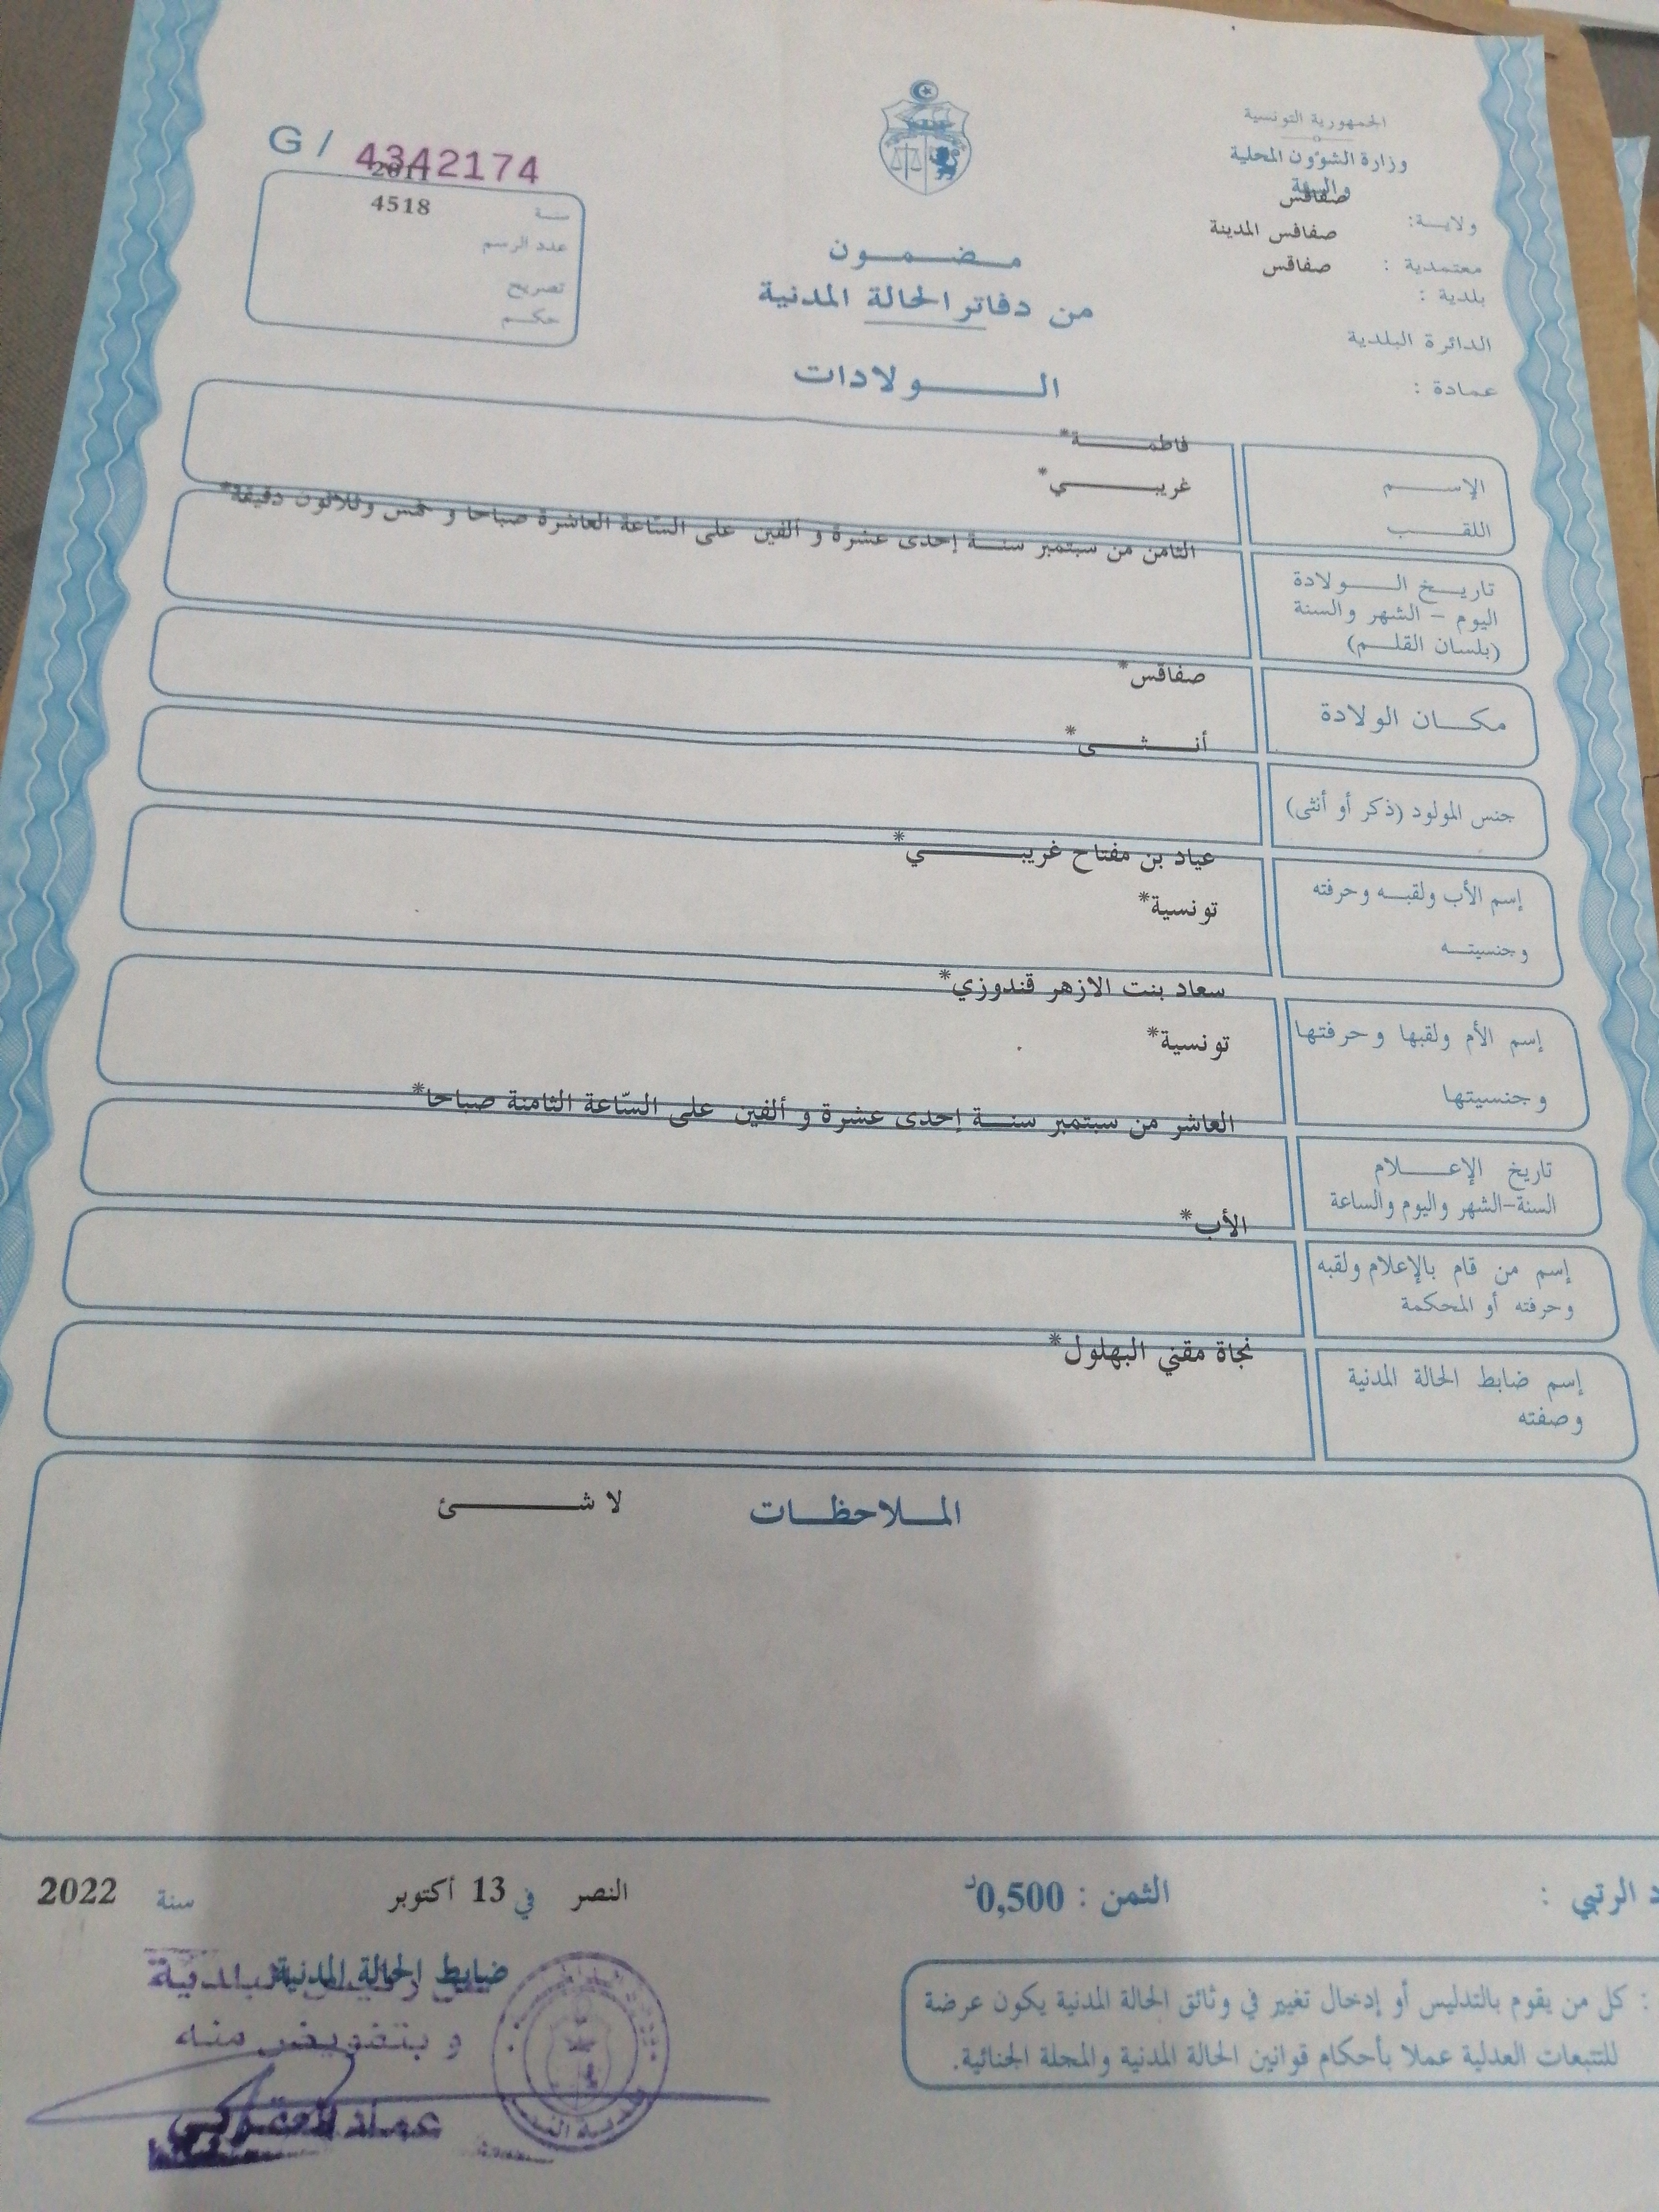 الجمهورية التونسية
وزارة الشؤون المحلية
والبيئة
ولاية: صفاقس
معتمدية : صفاقس المدينة
بلدية : صفاقس
الدائرة البلدية
عمادة :
G / 4342174
سنة 2011
عدد الرسم 4518
تصريح
حكم
مضمون
من دفاتر الحالة المدنية
الولادات
الإسم فاطمة*
اللقب غريبي*
تاريخ الولادة
اليوم - الشهر والسنة
(بلسان القلم)
الثامن من سبتمبر سنة إحدى عشرة و ألفين على السّاعة العاشرة صباحا و خمس وثلاثون دقيقة*
مكان الولادة صفاقس*
جنس المولود (ذكر أو أنثى) أنثى*
إسم الأب ولقبه وحرفته عياد بن مفتاح غريبي*
وجنسيته تونسية*
إسم الأم ولقبها وحرفتها سعاد بنت الازهر قندوزي*
وجنسيتها تونسية*
تاريخ الإعلام
السنة-الشهر واليوم والساعة
العاشر من سبتمبر سنة إحدى عشرة و ألفين على السّاعة الثامنة صباحا*
إسم من قام بالإعلام ولقبه
وحرفته أو المحكمة
الأب*
إسم ضابط الحالة المدنية
وصفته
نجاة مقني البهلول*
الملاحظات لا شئ
د الرتبي :
الثمن : 0,500د
النصر في 13 أكتوبر سنة 2022
: كل من يقوم بالتدليس أو إدخال تغيير في وثائق الحالة المدنية يكون عرضة
للتتبعات العدلية عملا بأحكام قوانين الحالة المدنية والمجلة الجنائية.
ضابط الحالة المدنية
البلدية
و بتفويض منه
عماد